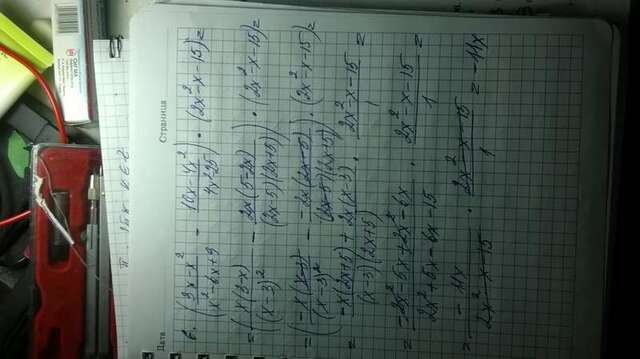 Страница
Дата
в. (3x-x²/x²-6x+9 - 10x-4x²/4x²-25) · (2x²-x-15)=
=(x(3-x)/(x-3)² - 2x(5-2x)/(2x-5)(2x+5)) · (2x²-x-15)=
=(-x(x-3)/(x-3)² - -2x(2x-5)/(2x-5)(2x+5)) · (2x²-x-15)=
= -x(2x+5)+2x(x-3)/(x-3)(2x+5) · 2x²-x-15/1 =
= -2x²-5x+2x²-6x/2x²+5x-6x-15 · 2x²-x-15/1 =
= -11x/2x²-x-15 · 2x²-x-15/1 = -11x